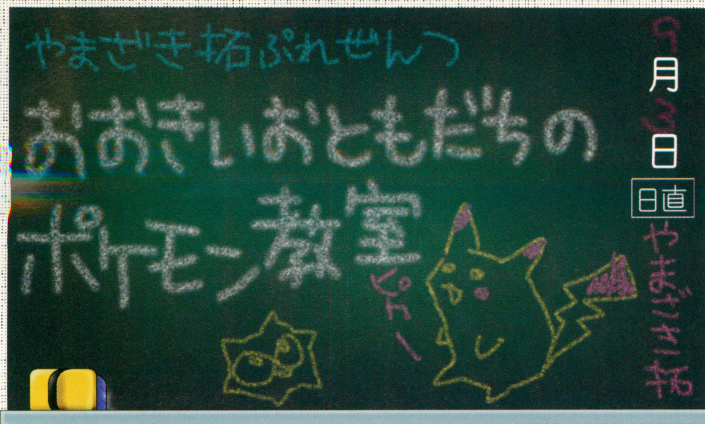 やまざき拓ぷれぜんつ
おおきいおともだちの
ポケモン教室
ピカー
9月3日
日直
やまざき拓